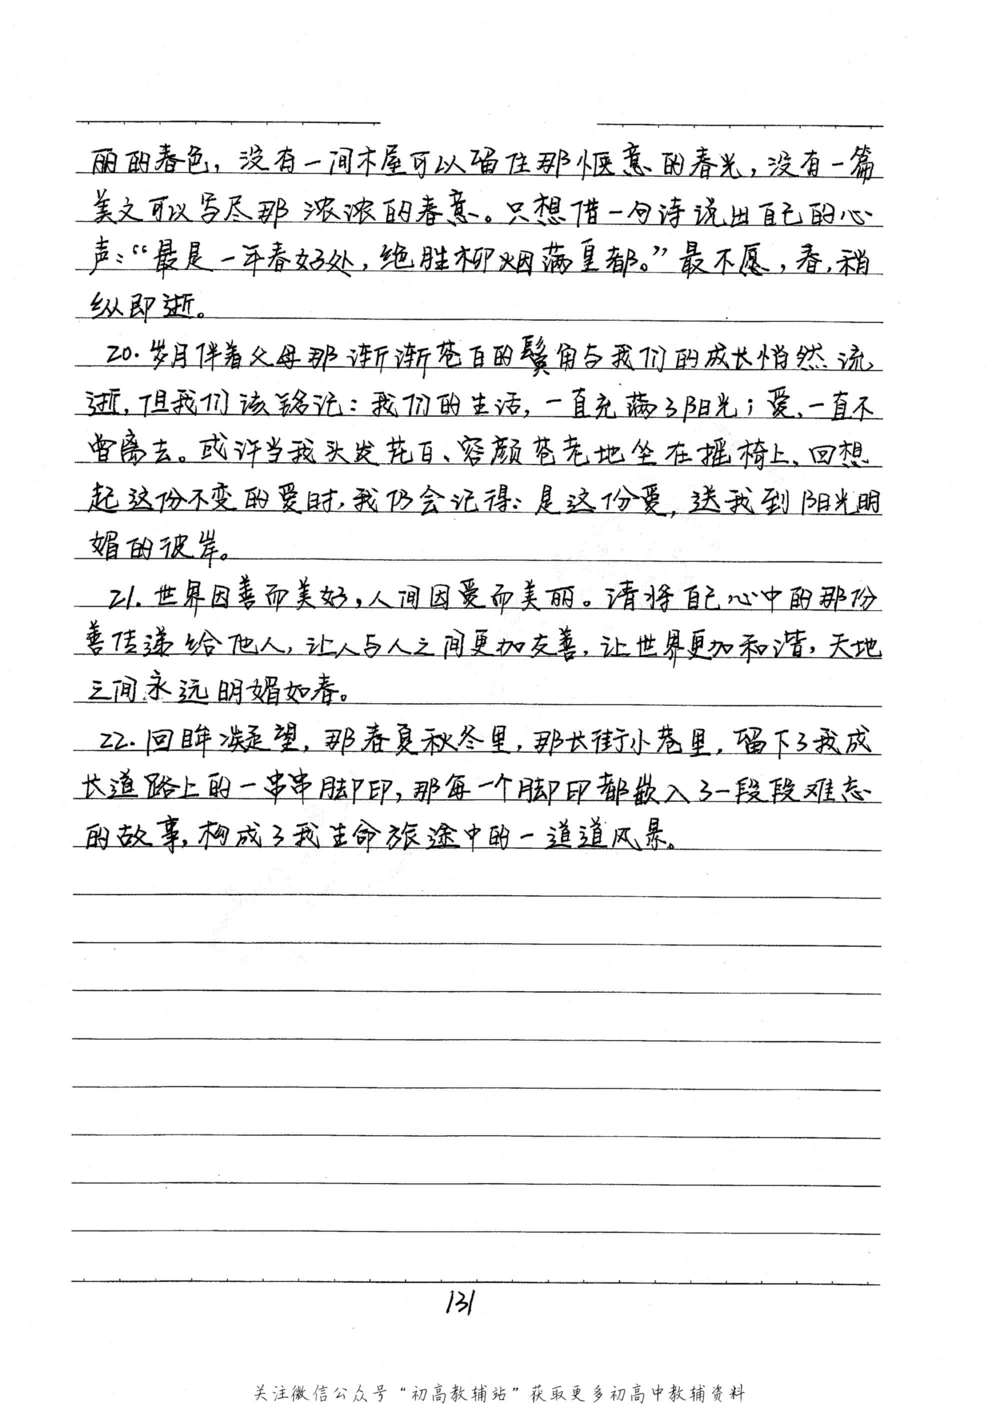 丽的春色，没有一间木屋可以留住那惬意的春光，没有一篇
美文可以写尽那浓浓的春意。只想借一句诗说出自己的心
声：“最是一年春好处，绝胜柳烟满皇都。”最不愿，春，稍
纵即逝。
20.岁月伴着父母那渐渐苍白的鬓角与我们的成长悄然流
逝，但我们该铭记：我们的生活，一直充满了阳光；爱，一直不
曾离去。或许当我头发花白、容颜苍老地坐在摇椅上，回想
起这份不变的爱时，我仍会记得：是这份爱，送我到阳光明
媚的彼岸。
21.世界因善而美好，人间因爱而美丽。请将自己心中的那份
善传递给他人，让人与人之间更加友善，让世界更加和谐，天地
之间永远明媚如春。
22.回眸凝望，那春夏秋冬里，那长街小巷里，留下了我成
长道路上的一串串脚印，那每一个脚印都嵌入了一段段难忘
的故事，构成了我生命旅途中的一道道风景。
131
关注微信公众号“初高教辅站”获取更多初高中教辅资料